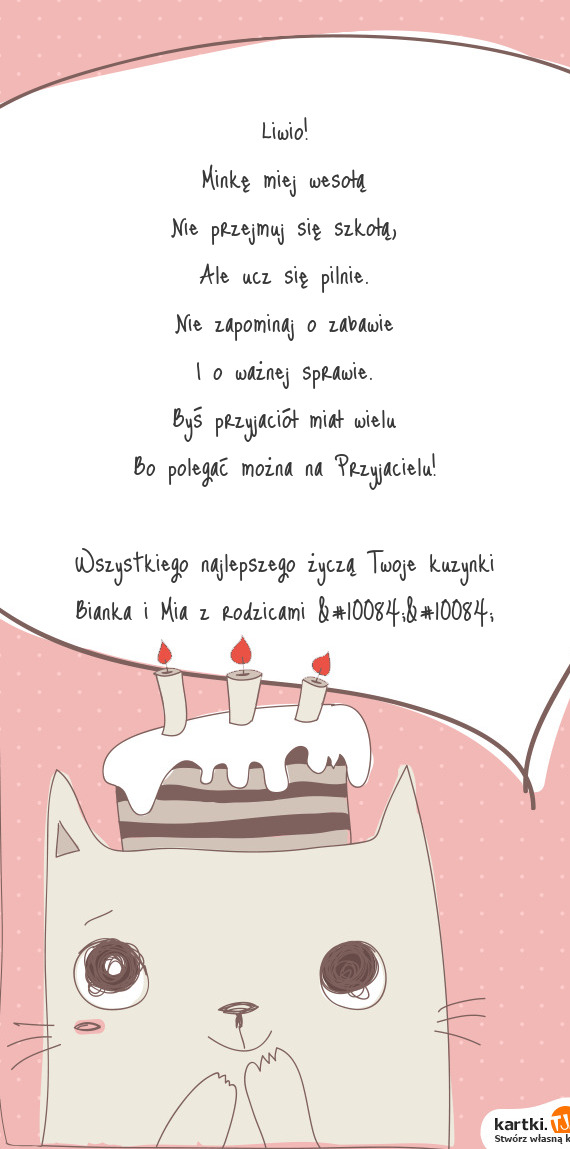 Liwio!
Minkę miej wesołą
Nie przejmuj się szkołą,
Ale ucz się pilnie.
Nie zapominaj o zabawie
I o ważnej sprawie.
Byś przyjaciół miał wielu
Bo polegać można na Przyjacielu!
Wszystkiego najlepszego życzą Twoje kuzynki
Bianka i Mia z rodzicami &#10084;&#10084;
kartki.TJ
Stwórz własną k